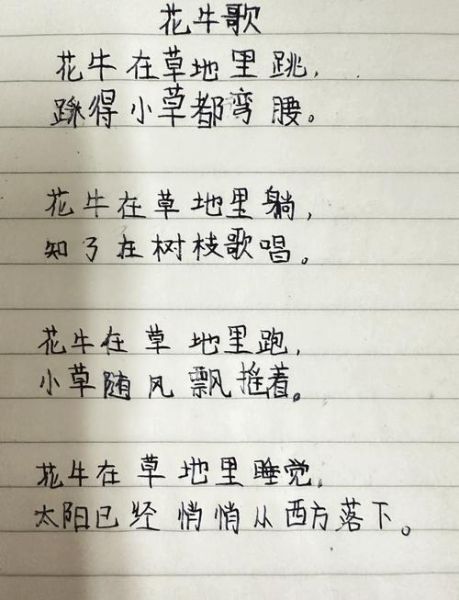 花牛歌
花牛在草地里跳，
踩得小草都弯腰。
花牛在草地里躺，
知了在树枝歌唱。
花牛在草地里跑，
小草随风飘摇着。
花牛在草地里睡觉，
太阳已经悄悄从西方落下。